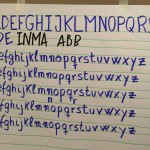 DEFGHIJKLMNOPQRS
DE INMA ABB
efghijklmnopqrstuvwxyz
efghijklmnopqrstuvwxyz
n r
efghijklmnopqrstuvwxyz
efghijklmnopqrstuvwxyz
efghijklmnopqrstuvwxyz